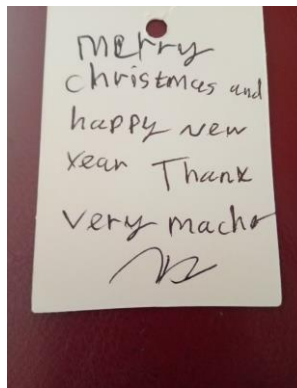 merry
christmas and
happy new
year Thank
very macho